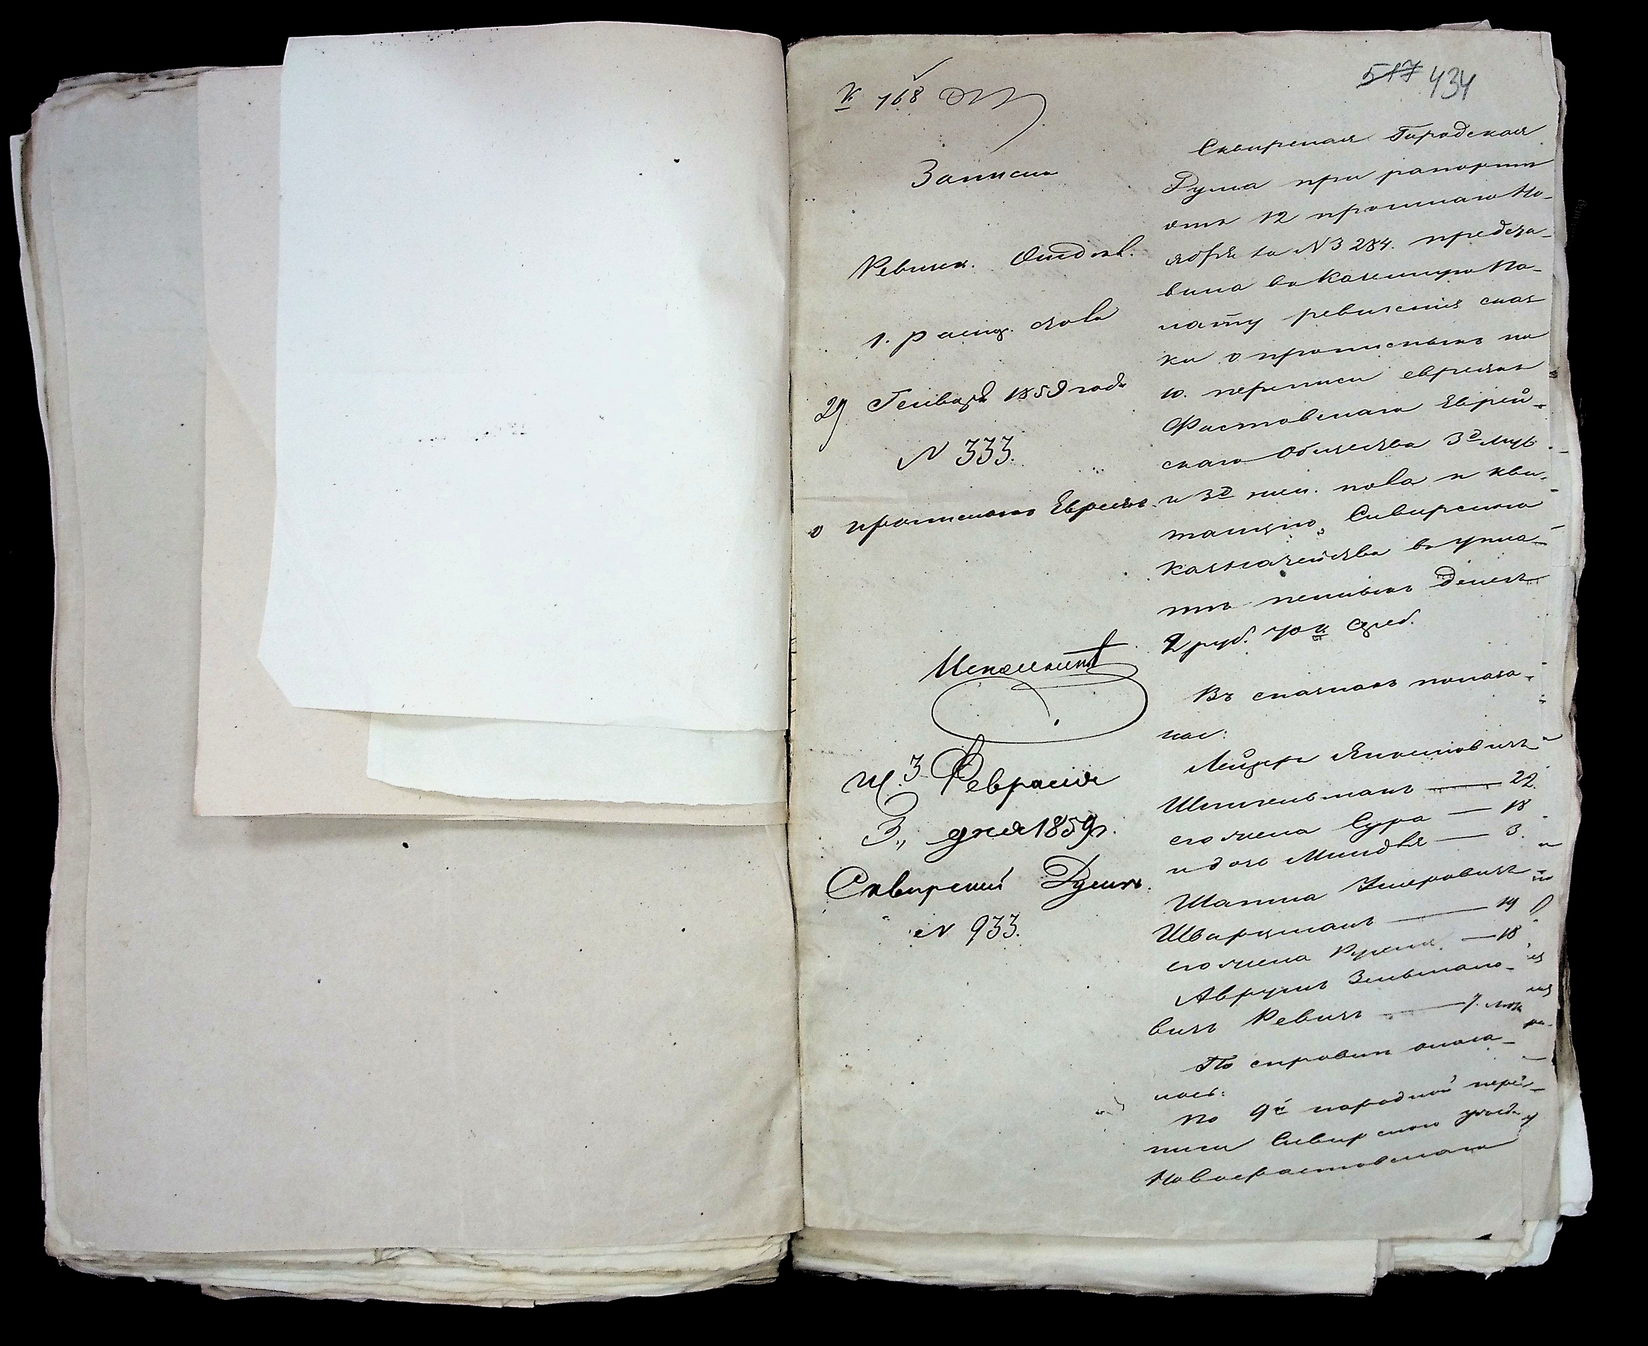 517 434
К 168
Записка
Ревизск. Отдел.
1. распор. стола
29 Генваря 1859 года
№ 333.
о прописныхъ Евреяхъ.
Исполнит
Исп. 3 Февраля
3, дня 1859 г.
Сквирской Думѣ.
№ 933.
Сквирская Городская
Дума при рапортѣ
отъ 12 прошлаго Но-
ября за № 3284. предста-
вила въ Казенную Па-
лату ревизскія сказ
ки о прописныхъ по
10. переписи евреяхъ
Фастовскаго Еврей-
скаго Общества 3х муж
и 3х жен. пола и кви-
танцію Сквирскаго
Казначейства въ упла-
тѣ пенныхъ денегъ
2 руб. 40 к сереб.
Въ сказкахъ показа-
но:
Лейзеръ Янкелевичъ
22.
его жена Сура — 18
и дочь Миндля — 3.
Шапса Умеровичъ
Шварцманъ — 19
его жена — 18
Аврумъ Зельмано-
вичъ Ревичъ — 7.
По справкѣ оказа-
лось:
По 9й народной пере-
писи Сквирскаго уѣзда
Новофастовскаго